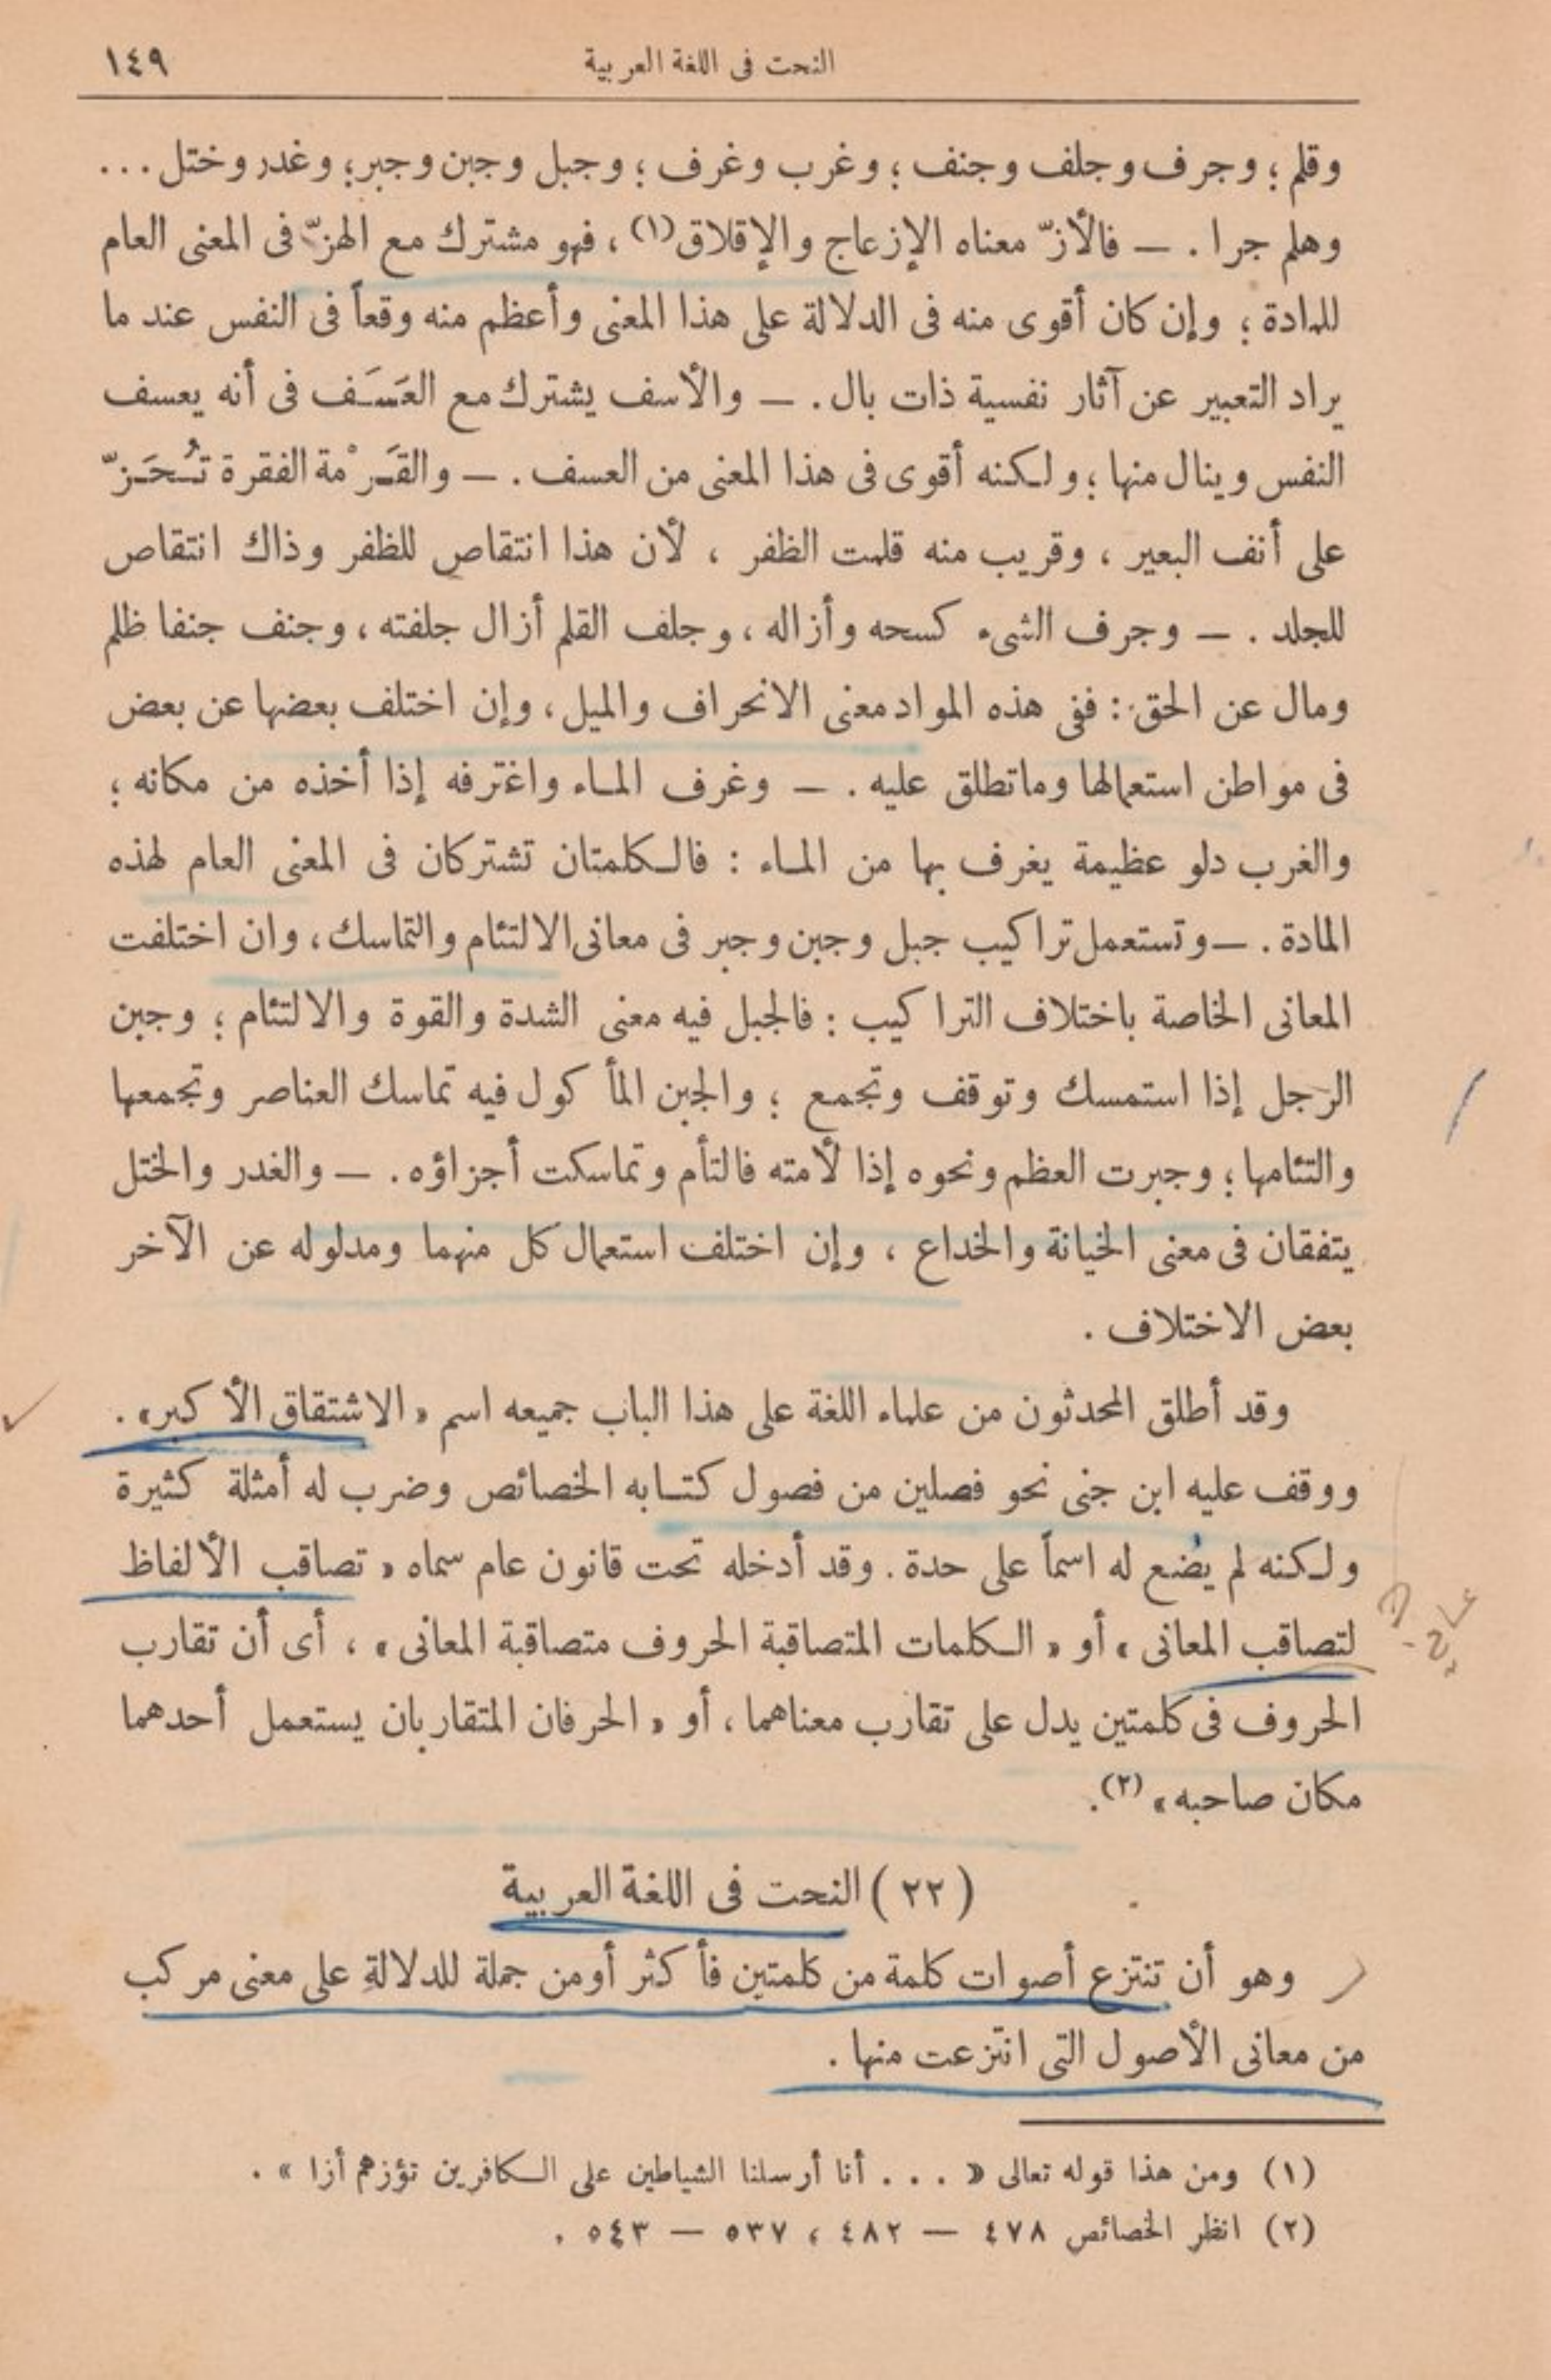 النحت فى اللغة العربية ١٤٩
وقلم ؛ وجرف وجلف وجنف ؛ وغرب وغرف ؛ وجبل وجبن وجبر ؛ وغدر وختل ...
وهلم جرا . — فالأزّ معناه الإزعاج والإقلاق (١) ، فهو مشترك مع الهزّ فى المعنى العام
للمادة ؛ وإن كان أقوى منه فى الدلالة على هذا المعنى وأعظم منه وقعاً فى النفس عند ما
يراد التعبير عن آثار نفسية ذات بال . — والأسف يشترك مع العَسَف فى أنه يعسف
النفس وينال منها ؛ ولكنه أقوى فى هذا المعنى من العسف . — والقَرْمة الفقرة تُحَزّ
على أنف البعير ، وقريب منه قلمت الظفر ، لأن هذا انتقاص للظفر وذاك انتقاص
للجلد . — وجرف الشىء كسحه وأزاله ، وجلف القلم أزال جلفته ، وجنف جنفا ظلم
ومال عن الحق : ففى هذه المواد معنى الانحراف والميل ، وإن اختلف بعضها عن بعض
فى مواطن استعمالها وماتطلق عليه . — وغرف الماء واغترفه إذا أخذه من مكانه ؛
والغرب دلو عظيمة يغرف بها من الماء : فالكلمتان تشتركان فى المعنى العام لهذه
المادة . — وتستعمل تراكيب جبل وجبن وجبر فى معانى الالتئام والتماسك ، وان اختلفت
المعانى الخاصة باختلاف التراكيب : فالجبل فيه معنى الشدة والقوة والالتئام ؛ وجبن
الرجل إذا استمسك وتوقف وتجمع ؛ والجبن المأكول فيه تماسك العناصر وتجمعها
والتئامها ؛ وجبرت العظم ونحوه إذا لأمته فالتأم وتماسكت أجزاؤه . — والغدر والختل
يتفقان فى معنى الخيانة والخداع ، وإن اختلف استعمال كل منهما ومدلوله عن الآخر
بعض الاختلاف .
وقد أطلق المحدثون من علماء اللغة على هذا الباب جميعه اسم « الاشتقاق الأكبر » .
ووقف عليه ابن جنى نحو فصلين من فصول كتابه الخصائص وضرب له أمثلة كثيرة
ولكنه لم يضع له اسماً على حدة . وقد أدخله تحت قانون عام سماه « تصاقب الألفاظ
لتصاقب المعانى » أو « الكلمات المتصاقبة الحروف متصاقبة المعانى » ، أى أن تقارب
الحروف فى كلمتين يدل على تقارب معناهما ، أو « الحرفان المتقاربان يستعمل أحدهما
مكان صاحبه » (٢).
(٢٢) النحت فى اللغة العربية
وهو أن تنتزع أصوات كلمة من كلمتين فأكثر أومن جملة للدلالةِ على معنى مركب
من معانى الأصول التى انتزعت منها .
(١) ومن هذا قوله تعالى « . . . أنا أرسلنا الشياطين على الكافرين تؤزهم أزا » .
(٢) انظر الخصائص ٤٧٨ — ٤٨٢ ، ٥٣٧ — ٥٤٣ .